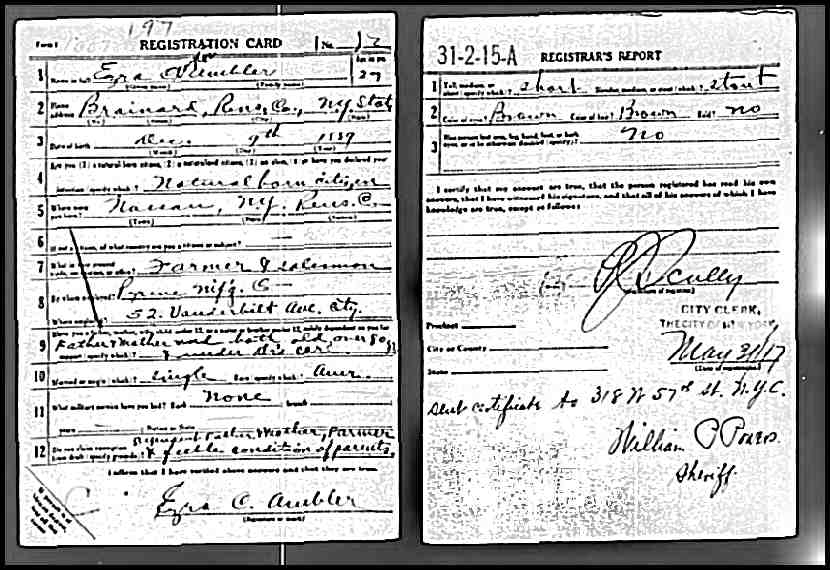 197
Form 1 REGISTRATION CARD No. 17
1 Name in full Ezra Ambler Age in yrs 27
(Given name) (Family name)
2 Home address Brainard, Rens. Co., N.Y. State
(No.) (Street) (City) (State)
3 Date of birth Dec. 9th 1889
(Month) (Day) (Year)
4 Are you (1) a natural born citizen, (2) a naturalized citizen, (3) an alien, (4) or have you declared your
intention (specify which)? Natural born citizen
5 Where were you born? Nassau, N.Y. Rens. C.
(Town) (State) (Nation)
6 If not a citizen, of what country are you a citizen or subject?
7 What is your present trade, occupation, or office? Farmer & Salesman
8 By whom employed? Mfg. C
Where employed? 52. Vanderbilt Ave. City.
9 Have you a father, mother, wife, child under 12, or a sister or brother under 12, solely dependent on you for
support (specify which)? Father & Mother both old, over
& under
10 Married or single (which)? Single Race (specify which)? Amer.
11 What military service have you had? Rank None branch
years Nation or State
12 Do you claim exemption from draft (specify grounds)? Dependent Father & Mother, Farmer
& feeble condition of parents.
I affirm that I have verified above answers and that they are true.
Ezra C. Ambler
(Signature or mark)
31-2-15-A REGISTRAR'S REPORT
1 Tall, medium, or short (specify which)? short Slender, medium, or stout (which)? stout
2 Color of eyes? Brown Color of hair? Brown Bald? No
3 Has person lost arm, leg, hand, foot, or both eyes, or is he otherwise disabled (specify)? No
I certify that my answers are true, that the person registered has read his own
answers, that I have witnessed his signature, and that all of his answers of which I have
knowledge are true, except as follows:
Scully
(Signature of registrar)
CITY CLERK,
THE CITY OF NEW YORK.
Precinct
City or County
State
May 31/17
(Date of registration)
Sent certificate to 318 W 57th St. N.Y.C.
William C Powers
Sheriff